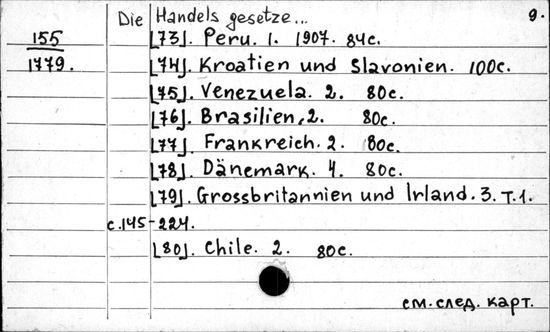 Die Handels gesetze... 9.
155 [73]. Peru. 1. 1907. 84c.
1779. [74]. Kroatien und Slavonien. 100c.
[75]. Venezuela. 2. 80c.
[76]. Brasilien, 2. 80c.
[77]. Frankreich. 2. 80c.
[78]. Dänemark. 4. 80c.
[79]. Grossbritannien und Irland. 3. Т.1.
с.145-224.
[80]. Chile. 2. 80c.
см. след. карт.